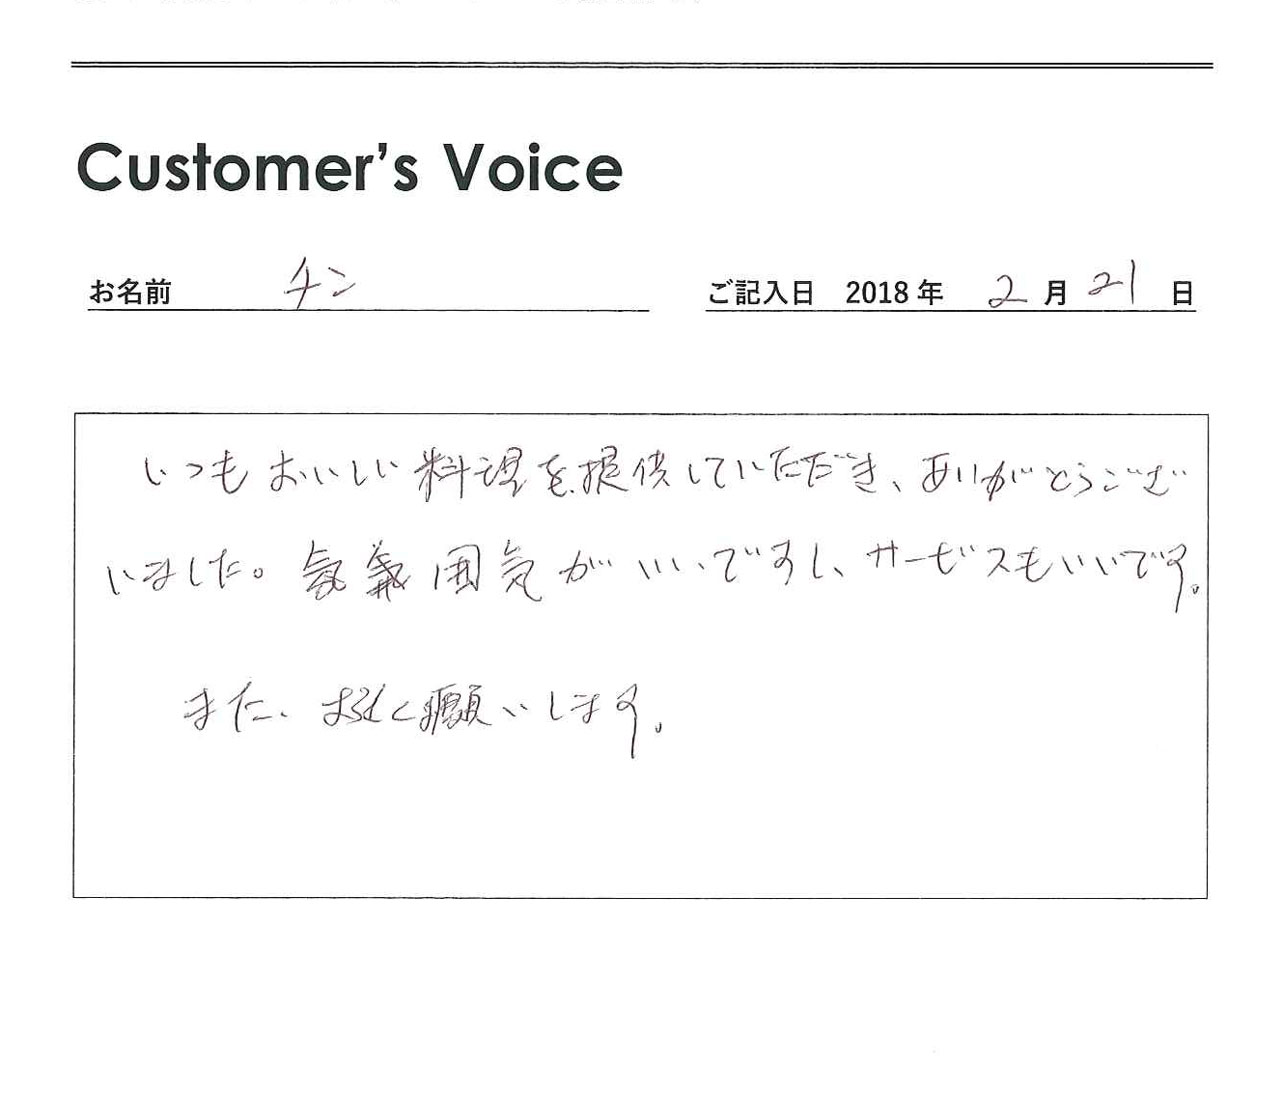 Customer's Voice
お名前 チン
ご記入日 2018年 2月21日
いつもおいしい料理を提供していただき、ありがとうござ
いました。雰囲気がいいですし、サービスもいいです。
また、よろしく願いします。